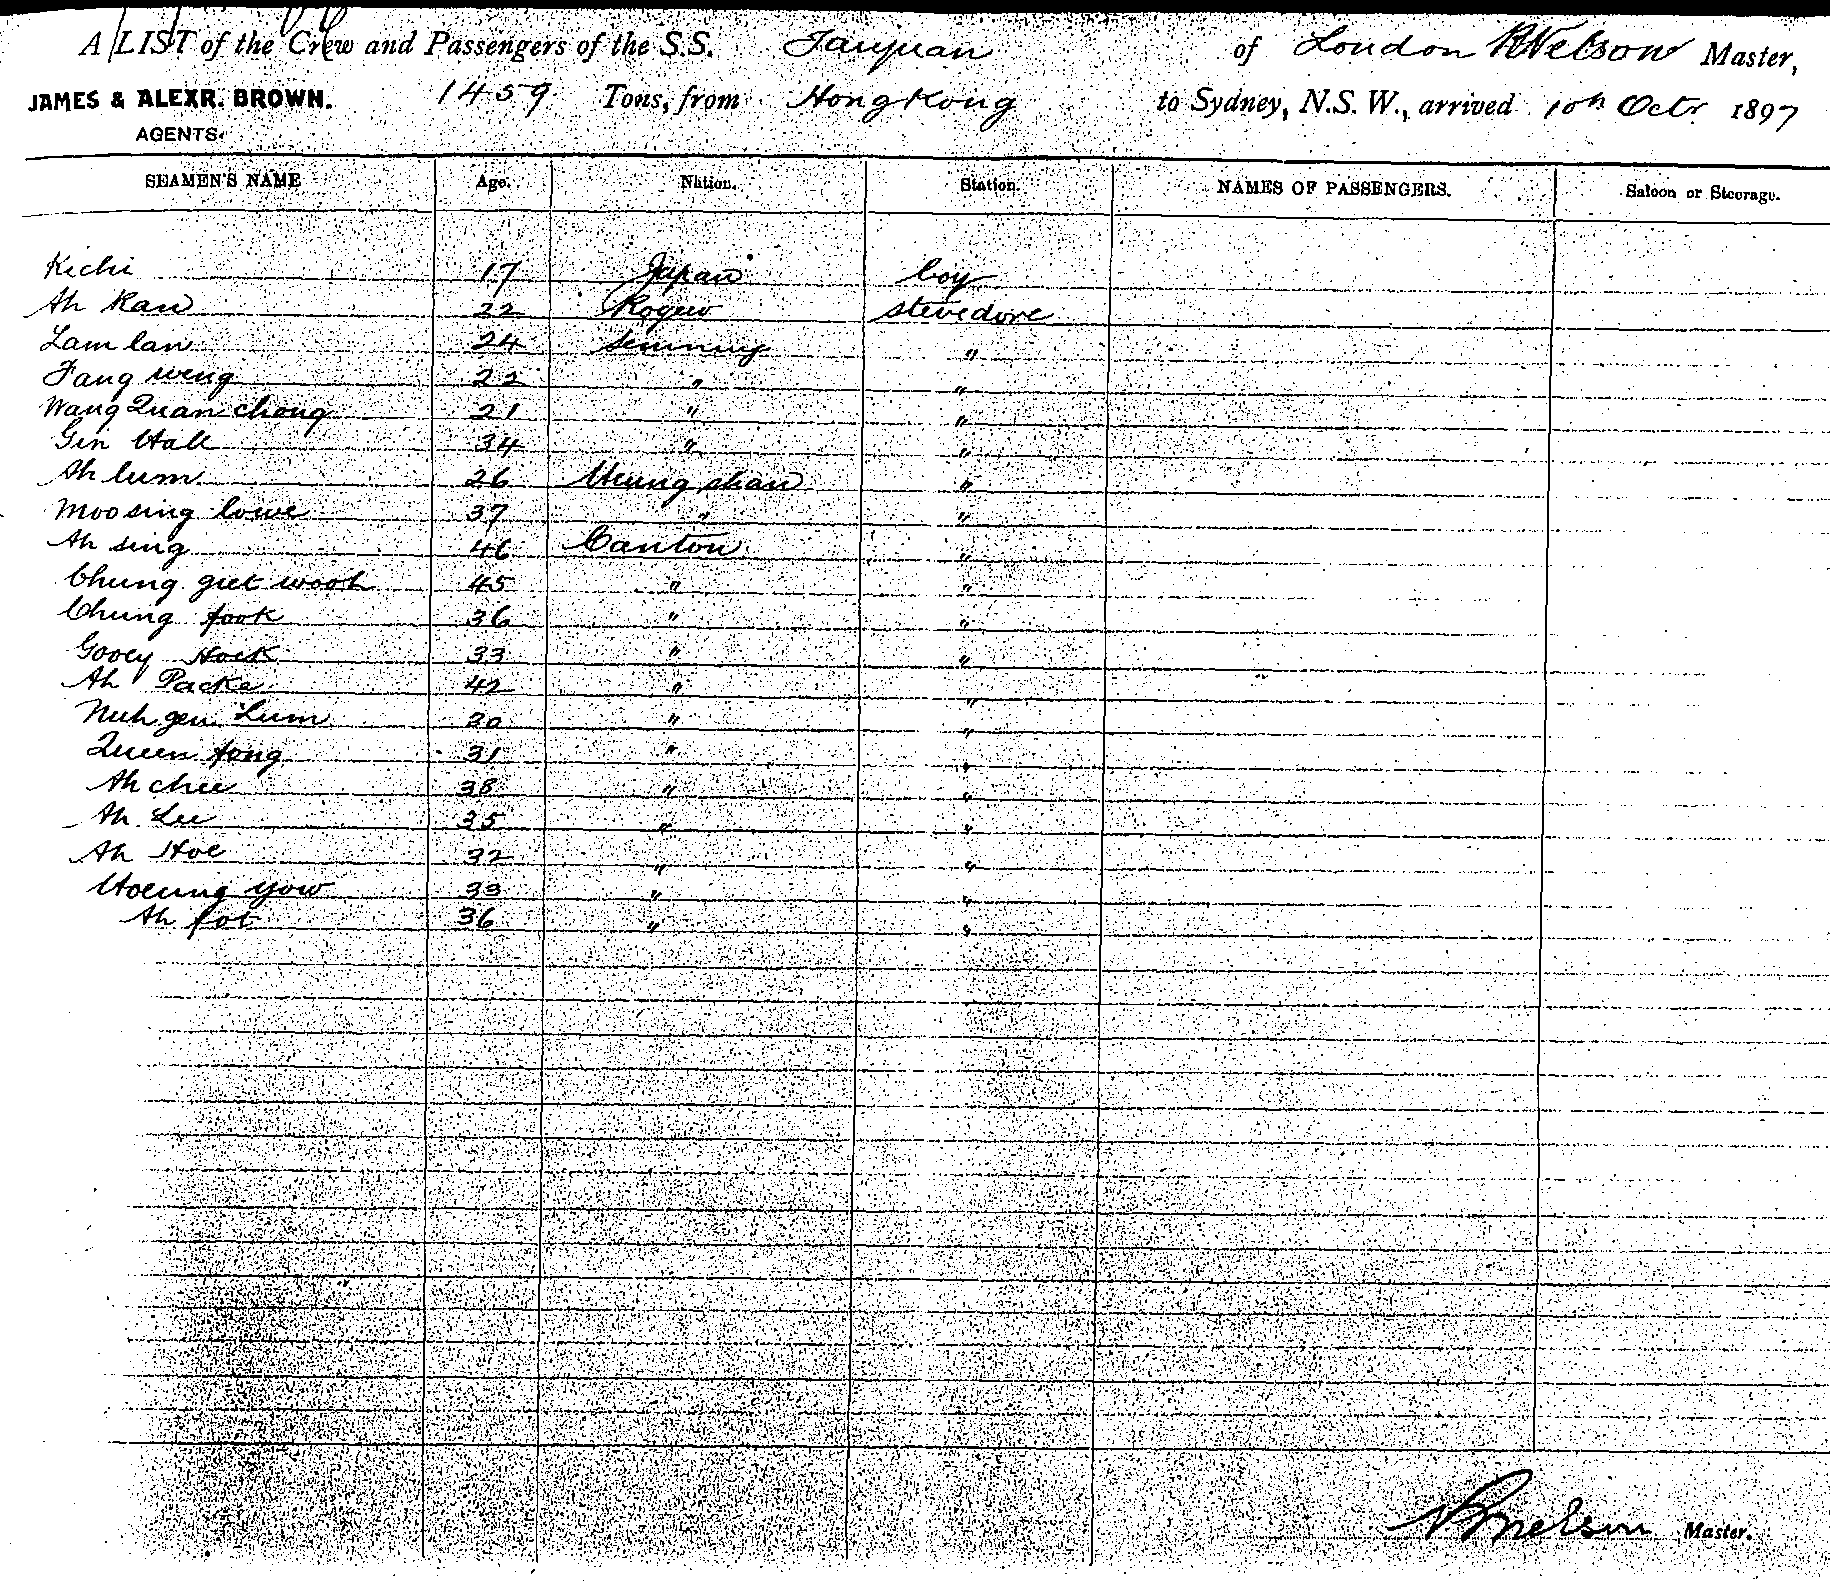 A LIST of the Crew and Passengers of the S.S. Taiyuan of London R Nelson Master,
JAMES & ALEXR. BROWN. 1459 Tons, from Hong Kong to Sydney, N.S.W., arrived 10th Octr 1897
AGENTS.
SEAMEN'S NAME Age. Nation. Station. NAMES OF PASSENGERS. Saloon or Steerage.
Kichi 17 Japan boy
Ah Kan 22 stevedore
Lam lan 24 "
Fang weng 22 " "
Wang Quan chong 21 " "
Gin Hall 34 " "
Ah lum 26 Heung shan "
Moo sing lowe 37 " "
Ah sing 46 Canton "
Chung guet wooh 45 " "
Chung fook 36 " "
Gooey Hock 33 " "
Ah Packe 42 " "
gen Lum 30 " "
Queen fong 31 " "
Ah chee 38 " "
Ah Lee 35 " "
Ah Hoe 32 " "
Hoeung yow 33 " "
Ah fot 36 " "
R Nelson Master.